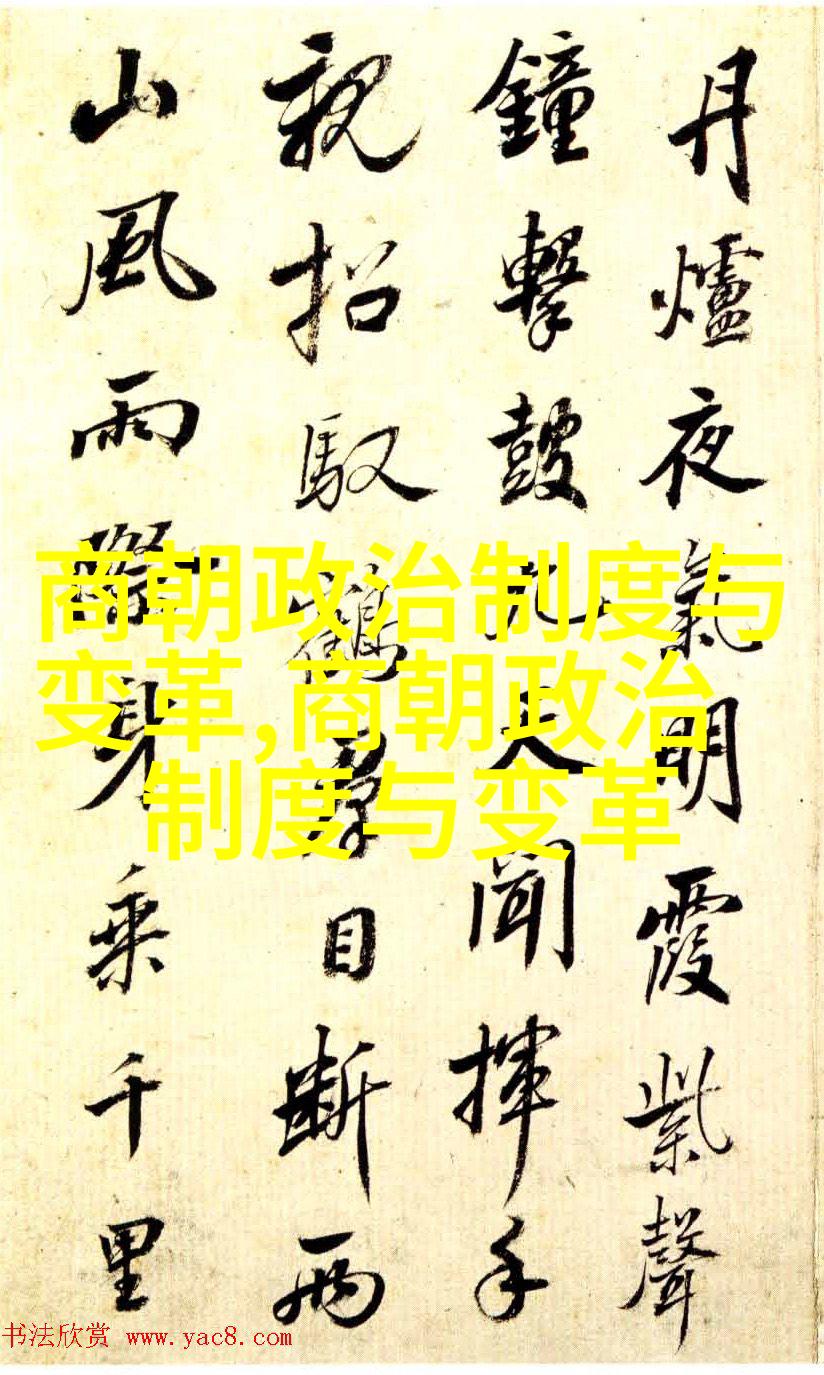 丹爐夜氣明霞紫聲
鐘擊鼓九天聞揮手
親招馭鶴羣目斷兩
山風雨身乘千里
商朝政治制度与
变革,商朝政治
制度与变革
书法欣赏 www.yac8.com